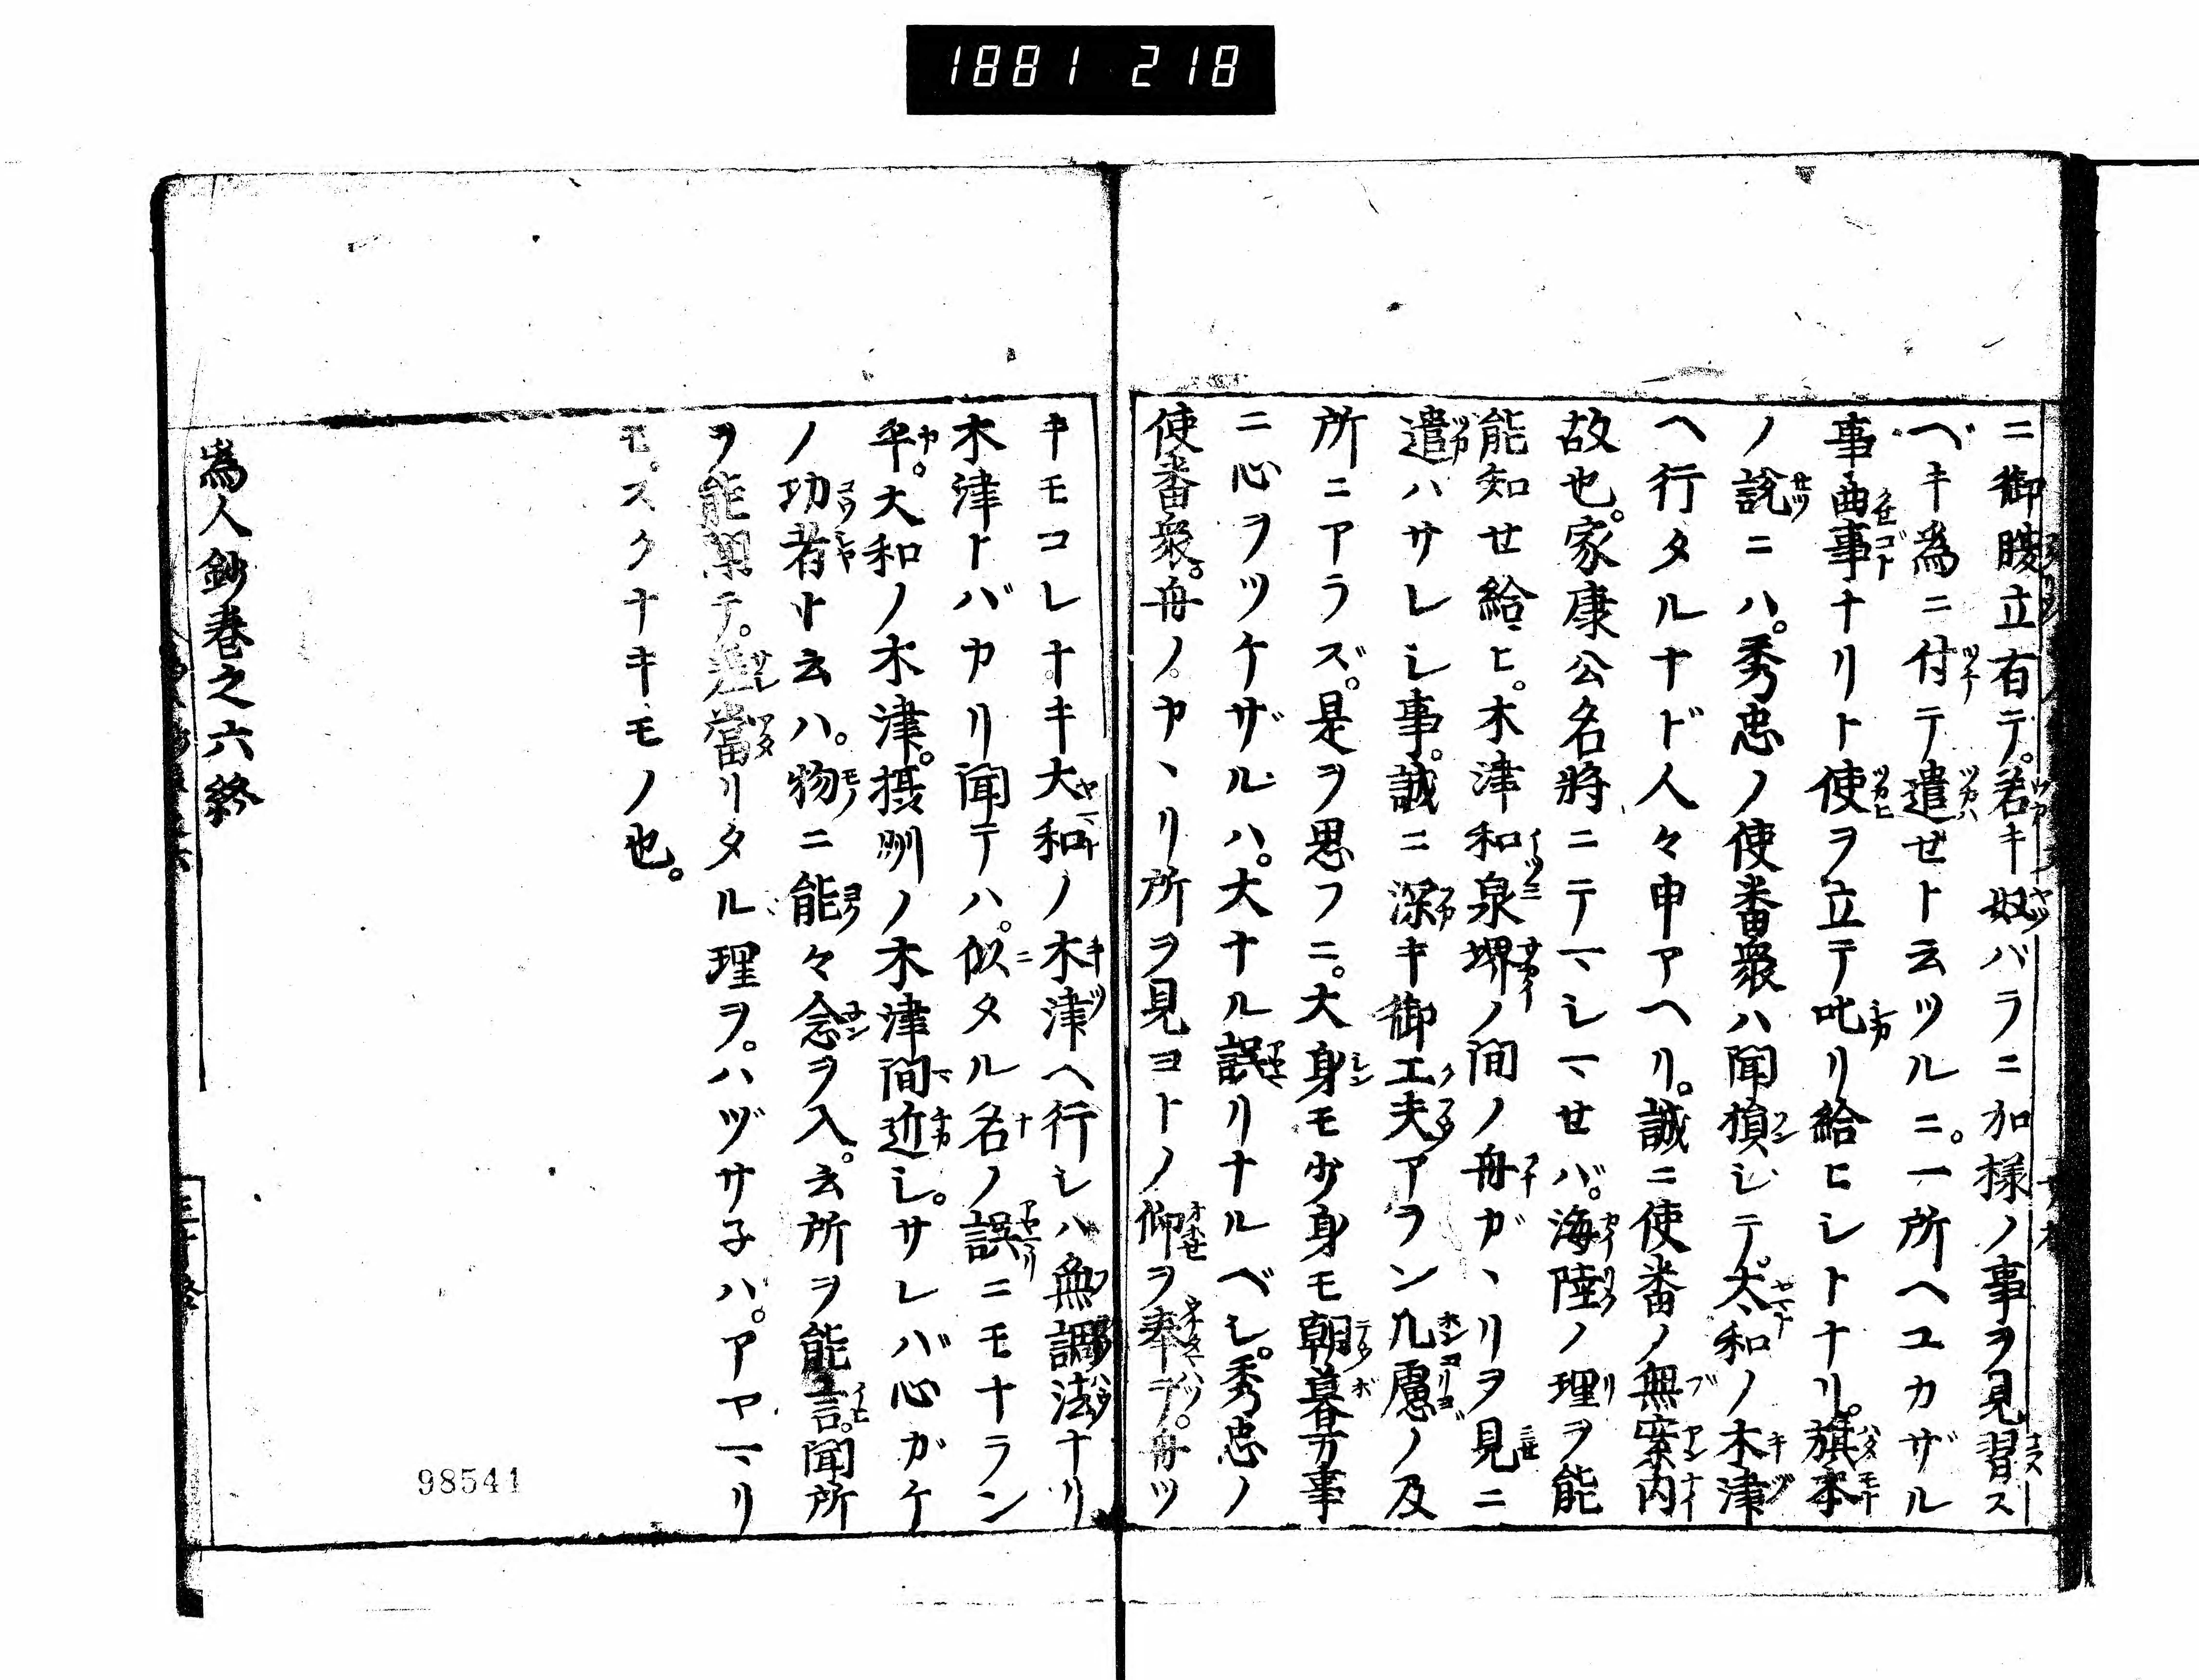 1881 218
ニ御腹立有テ。若キ奴バラニ加様ノ事ヲ見習ス
ベキ為ニ付テ遣セト云ツルニ。一所ヘユカザル
事曲事ナリト使ヲ立テ叱リ給ヒシトナリ。旗本
ノ説ニハ。秀忠ノ使番衆ハ聞損シテ。大和ノ木津
ヘ行タルナド人々申アヘリ。誠ニ使番ノ無案内
故也。家康公名将ニテマシマセバ。海陸ノ理ヲ能
能知セ給ヒ。木津和泉堺ノ間ノ舟ガヽリヲ見ニ
遣ハサレシ事。誠ニ深キ御工夫アラン凡慮ノ及
所ニアラズ。是ヲ思フニ。大身モ少身モ朝暮万事
ニ心ヲツケザルハ。大ナル誤リナルベシ。秀忠ノ
使番衆。舟ノカヽリ所ヲ見ヨトノ仰ヲ奉テ。舟ツ
キモコレナキ大和ノ木津ヘ行シハ無調法ナリ
木津トバカリ聞テハ。似タル名ノ誤ニモナラン
乎。大和ノ木津。摂州ノ木津間近シ。サレバ心ガケ
ノ功者ト云ハ。物ニ能々念ヲ入。云所ヲ能言。聞所
ヲ能聞テ。差當リタル理ヲ。ハヅサ子ハ。アヤマリ
モ。スクナキモノ也。
為人鈔巻之六終
98541